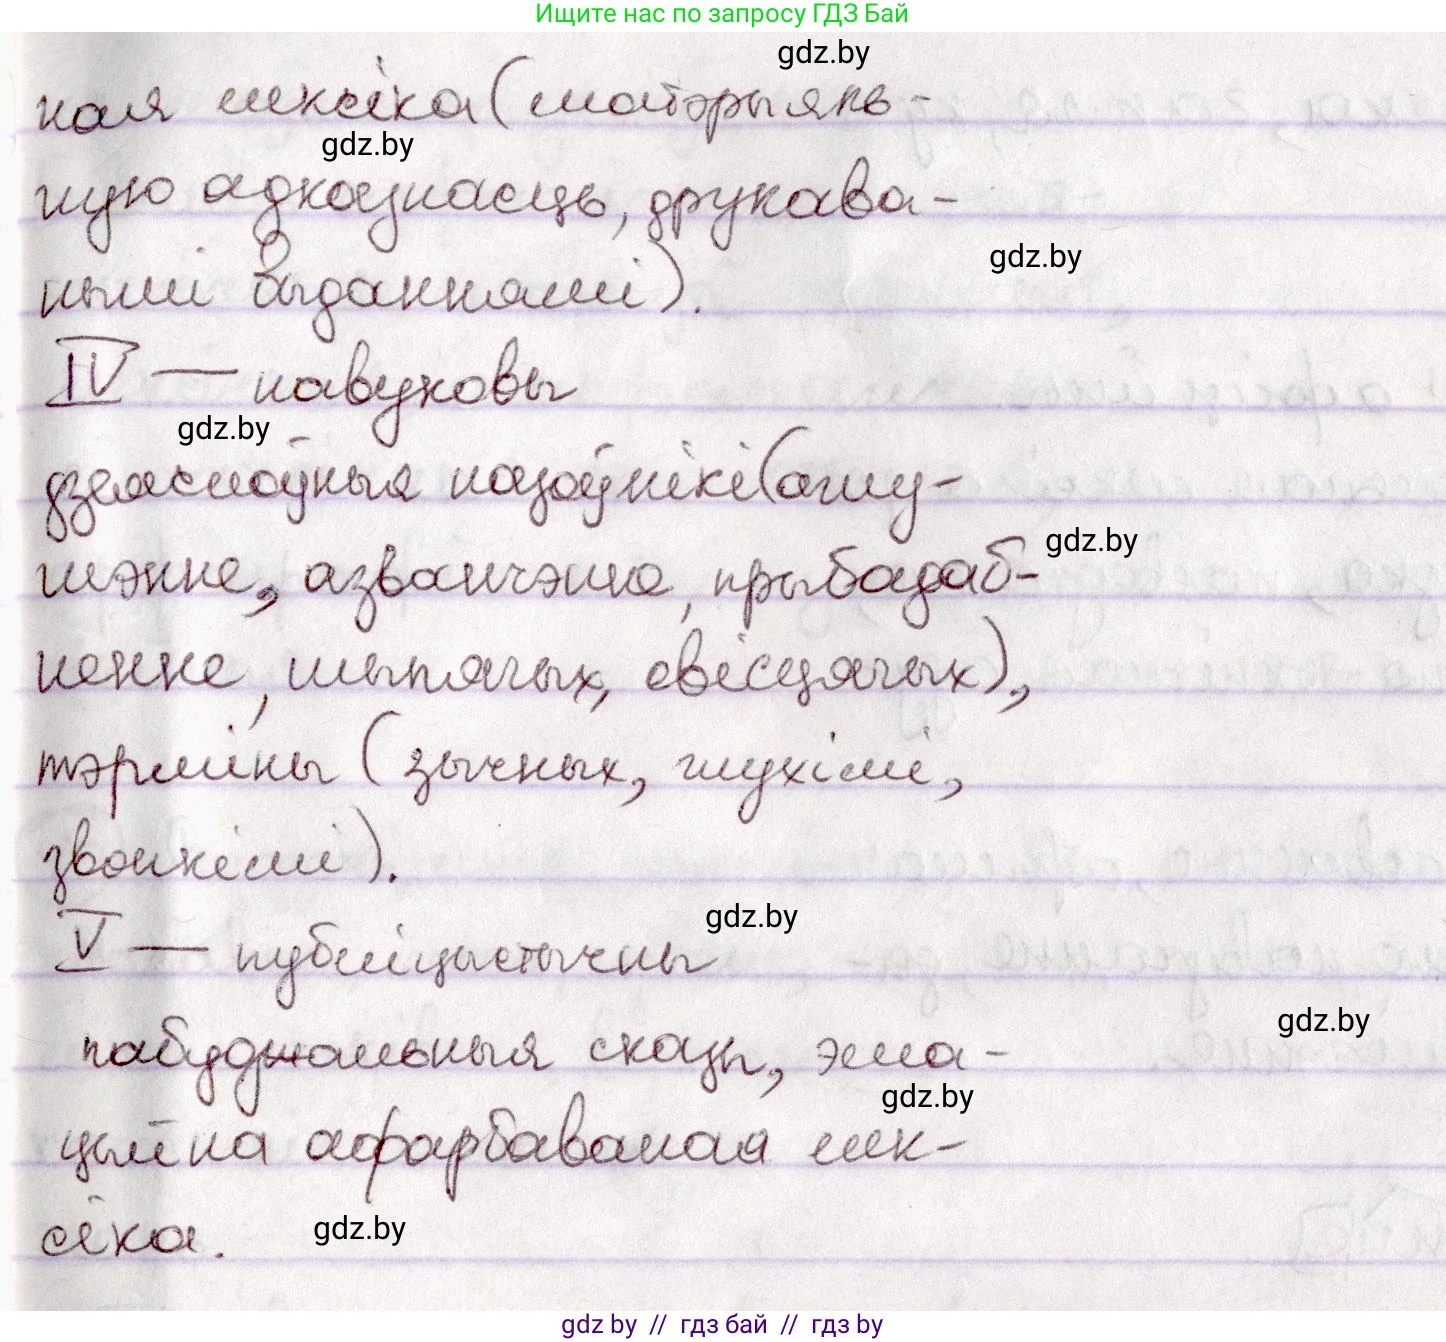 Ищите нас по запросу ГДЗ Бай
gdz.by
ная лексіка (матэрыяль-
gdz.by
ную адказнасць, друкава-
gdz.by
нымі выданнямі).
IV — навуковы
gdz.by
дзеяслоўныя назоўнікі (аглу-
gdz.by
шэнне, азванчэнне, прыпадаб-
ненне, шыпячых, свісцячых),
тэрміны (зычных, глухімі,
звонкімі).
gdz.by
V — публіцыстычны
gdz.by
пабуджальныя сказы, эма-
gdz.by
цыйна афарбаваная лек-
сіка.
gdz.by
gdz by // гдз бай // гдз by